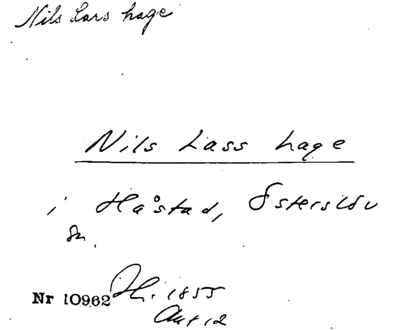 Nils Lars hage
Nils Lass hage
i Håstad, Österslöv
Sn.
Nr 10962 H. 1855
Akt 12